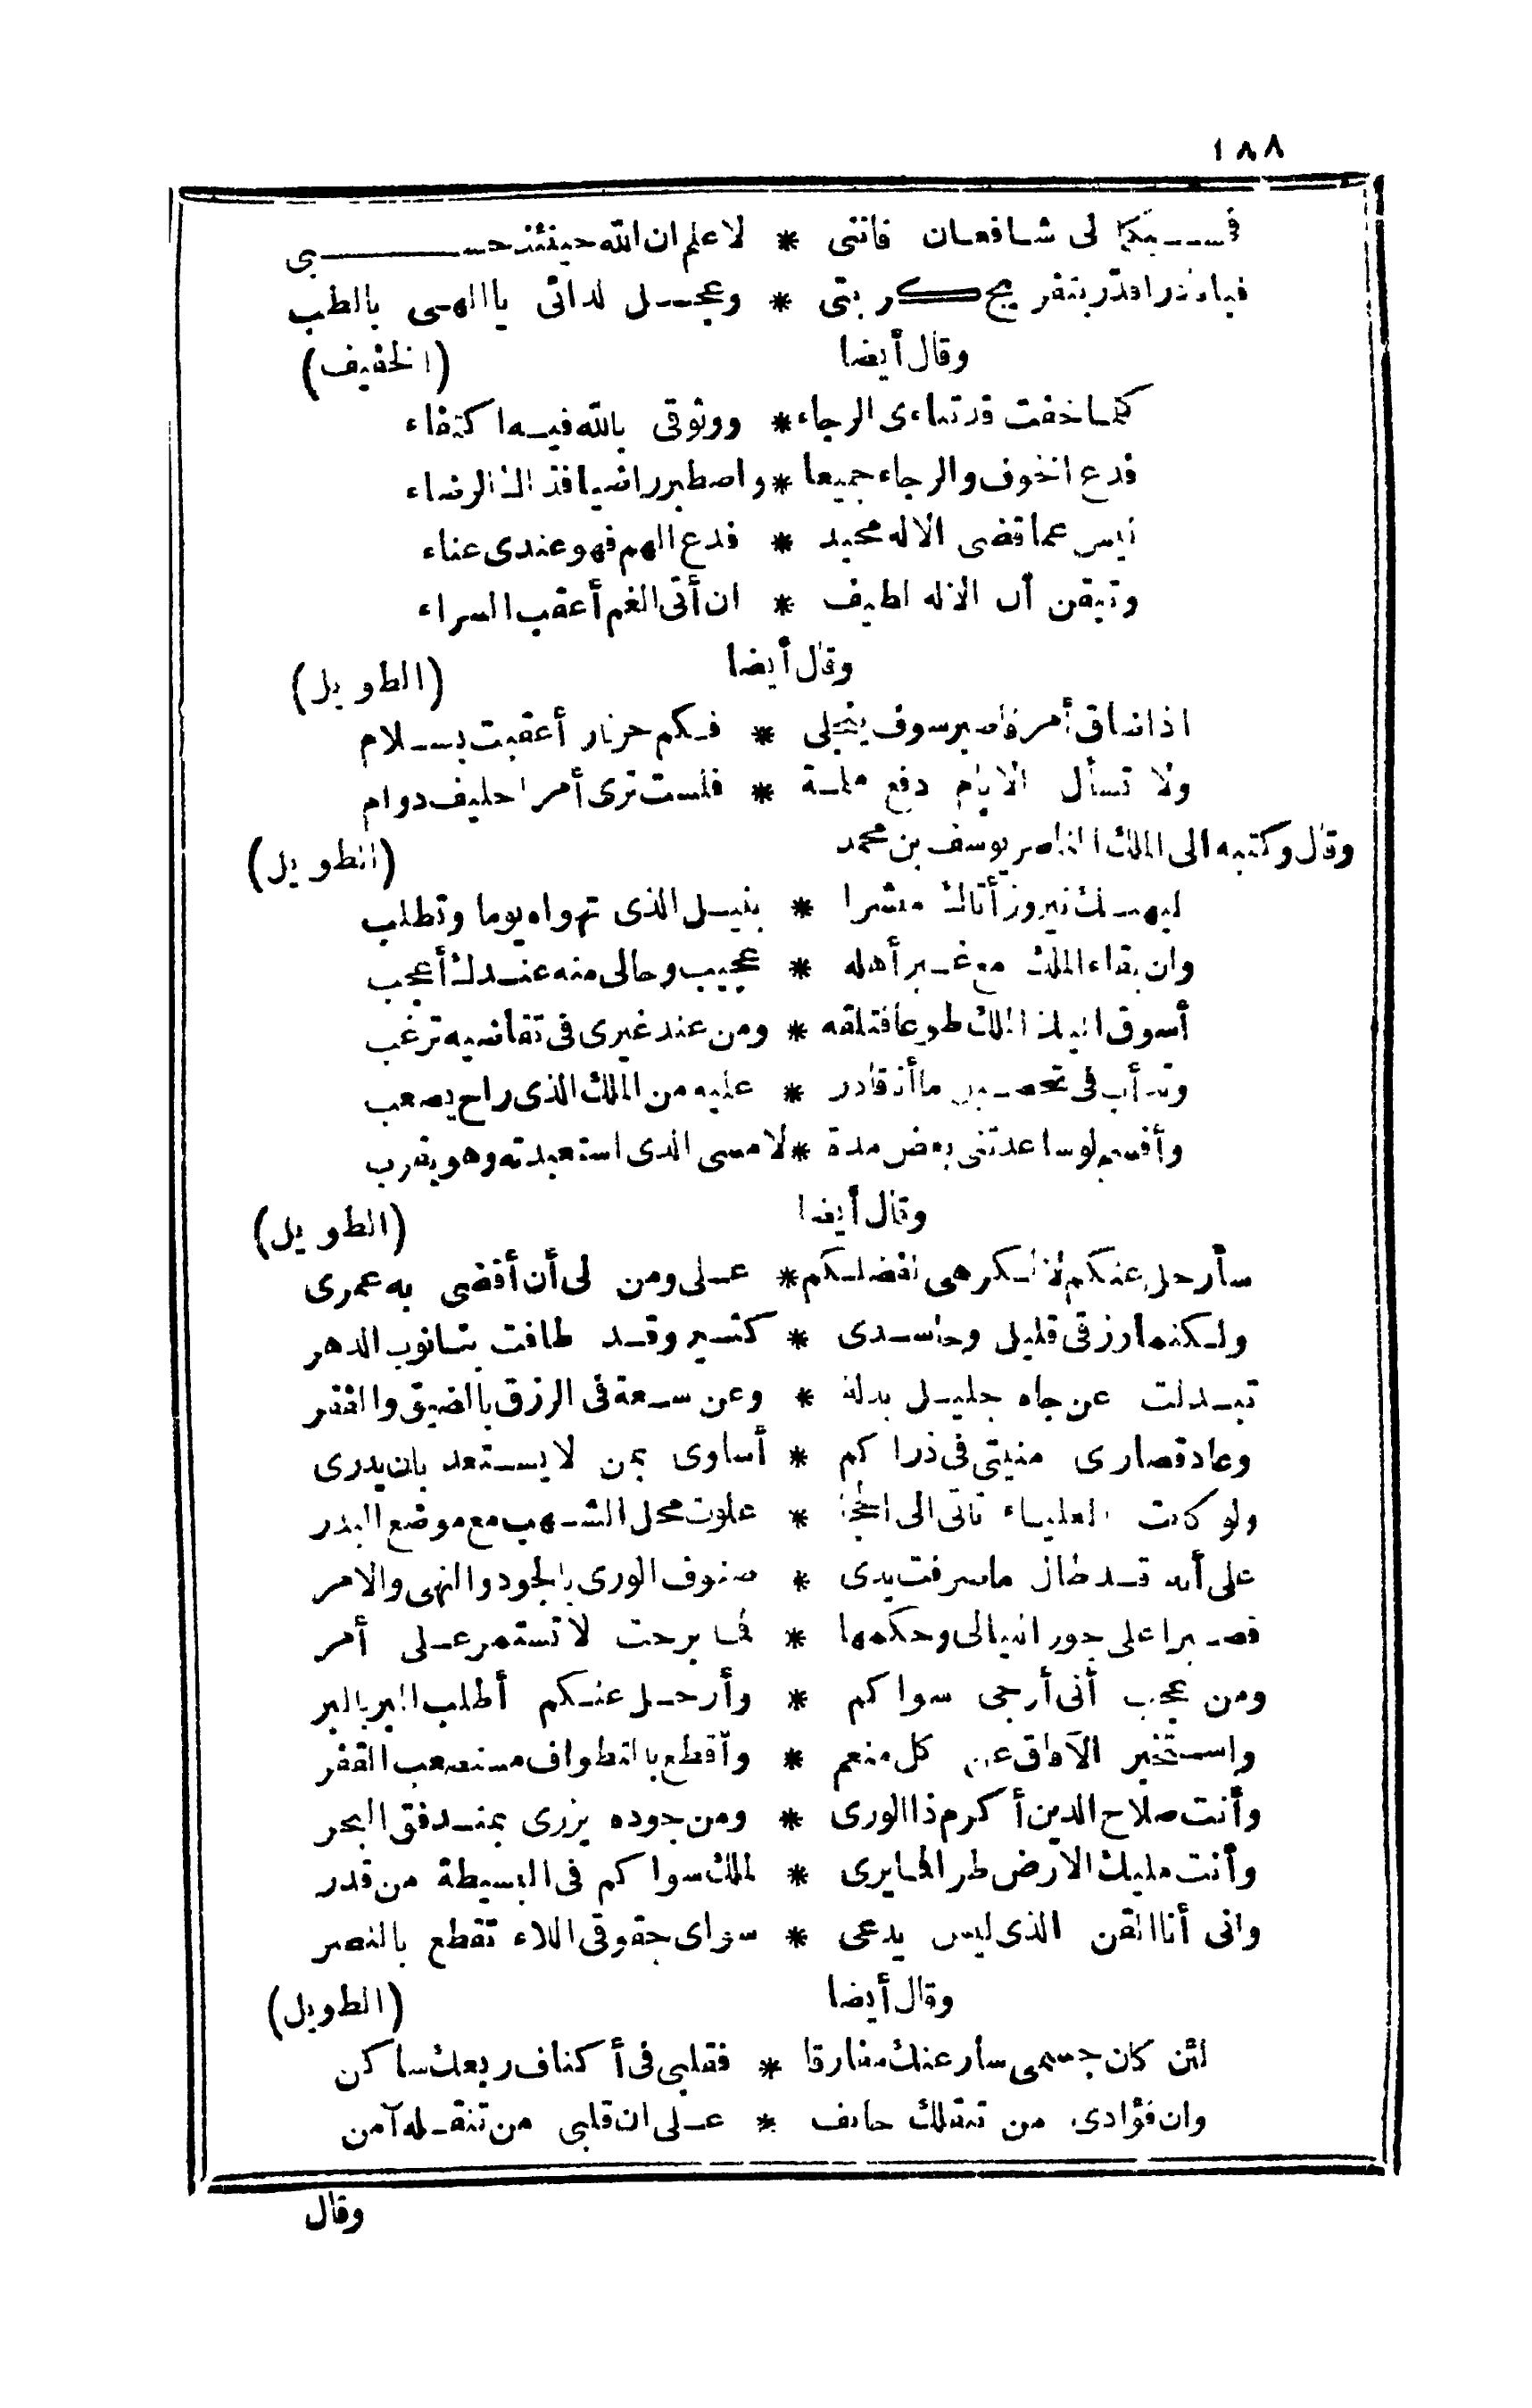 ١٨٨
لى شافعان فاننى * لاعلم ان الله حينئذ حسبى
بتفريج كربتى * وعجل لدائى ياالهى بالطب
وقال أيضا (الخفيف)
كلما خفت قد تناءى الرجاء * ووثوقى بالله فيه اكتفاء
فدع الخوف والرجاء جميعا * واصطبر راضيا فذاك الرضاء
ليس عما قضى الاله محيد * فدع الهم فهو عندى عناء
وتيقن أن الاله لطيف * ان أتى الغم أعقب السراء
وقال أيضا (الطويل)
اذا ضاق أمر فاصبر سوف ينجلى * فكم حر نار أعقبت بسلام
ولا تسأل الايام دفع ملمة * فلست ترى أمرا حليف دوام
وقال وكتبه الى الملك الناصر يوسف بن محمد (الطويل)
ليهنك نيروز أتاك مبشرا * بنيل الذى تهواه يوما وتطلب
وان بقاء الملك مع غير أهله * عجيب وحالى منه عندك أعجب
أسوق اليك الملك طوعا فتلقه * ومن عند غيرى فى تقاضيه ترغب
وتدأب فى تحصيل ما أنا قادر * عليه من الملك الذى راح يصعب
وأقسم لو ساعدتنى بعض مدة * لامسى الذى استعبدته وهو يقرب
وقال أيضا (الطويل)
سأرحل عنكم لا لكرهى لفضلكم * على ومن لى أن أقضى به عمرى
ولكنما رزقى قليل وحاسدى * كثير وقد طافت بنا نوب الدهر
تبدلت عن جاه جليل بذلة * وعن سعة فى الرزق بالضيق والفقر
وعاد قصارى منيتى فى ذراكم * أساوى بمن لا يستعد بان يدرى
ولو كانت العلياء تاتى الى الحجا * علوت محل الشهب مع موضع البدر
على أنه قد طال ما صرفت يدى * صنوف الورى بالجود والنهى والامر
فصبرا على جور الليالى وحكمها * فما برحت لا تستمر على أمر
ومن عجب أنى أرجى سواكم * وأرحل عنكم أطلب البر بالبر
واستخبر الآفاق عن كل منعم * وأقطع بالتطواف مستصعب القفر
وأنت صلاح الدين أكرم ذا الورى * ومن جوده يزرى بمندفق البحر
وأنت مليك الارض طرا فما يرى * لملك سواكم فى البسيطة من قدر
وانى أنا القن الذى ليس يدعى * سواى حقوقى اللاء تقطع بالنصر
وقال أيضا (الطويل)
لئن كان جسمى سار عنك مفارقا * فقلبى فى أكناف ربعك ساكن
وان فؤادى من تنقلك خائف * على ان قلبى من تنقله آمن
وقال